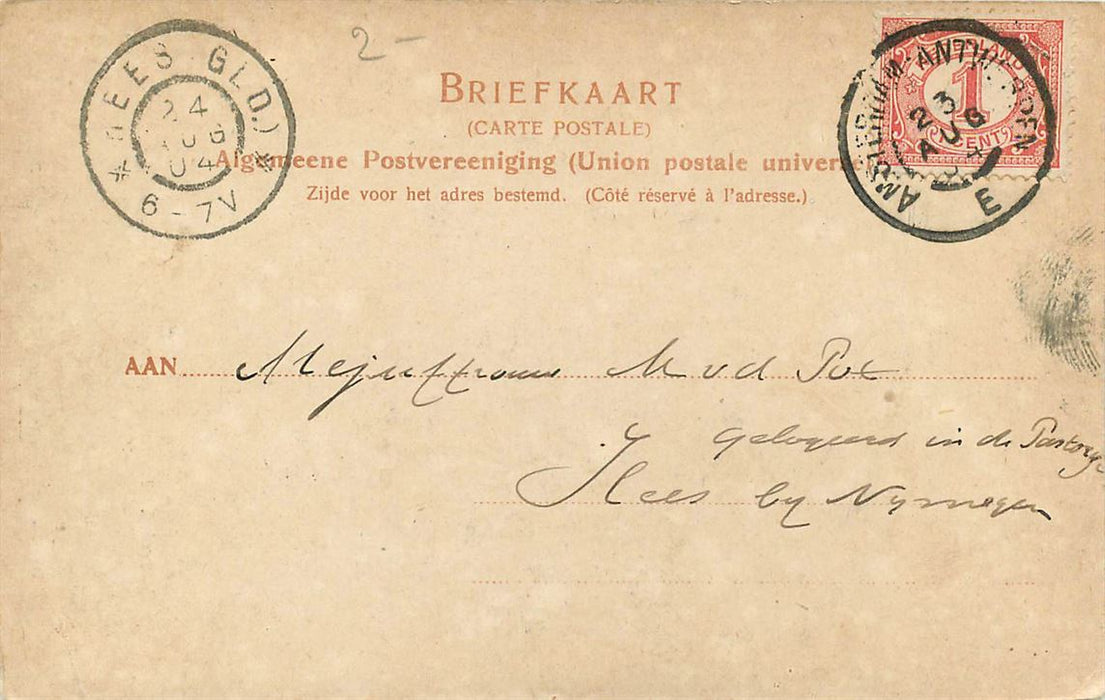 2 -
HEES (GLD.)
24
AUG
04
6 - 7V
BRIEFKAART
(CARTE POSTALE)
Algemeene Postvereeniging (Union postale univer
Zijde voor het adres bestemd. (Côté réservé à l'adresse.)
NEDERLAND
1
CENT
AMSTERDAM-ANTWERPEN
23
AUG
E
AAN Mejuffrouw M v d Pot
Gelogeerd in de Pastorij
Hees by Nymegen